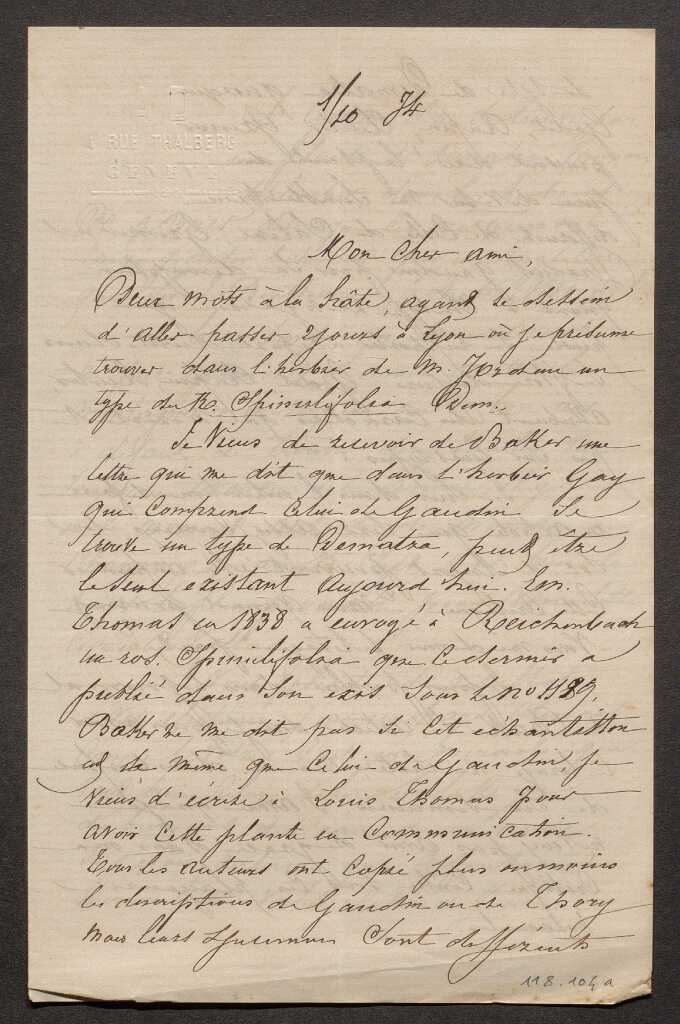 RUE THALBERG
GENÈVE
1/10 74
Mon cher ami,
Deux mots à la hâte, ayant le dessein
d'aller passer 2 jours à Lyon où je présume
trouver dans l'herbier de M. Jordan un
type du R. Spinulifolia Dem.
Je viens de recevoir de Baker une
lettre qui me dit que dans l'herbier Gay
qui comprend celui de Gaudin se
trouve un type de Dematra, peut être
le seul existant aujourd'hui. Em.
Thomas en 1838 a envoyé à Reichenbach
un ros. Spinulifolia que ce dernier a
publié dans son exs. sous le no 1189.
Baker ne me dit pas si cet échantillon
est le même que celui de Gaudin, je
viens d'écrire à Louis Thomas pour
avoir cette plante en communication.
Tous les auteurs ont copié plus ou moins
les descriptions de Gaudin ou de Thory
mais leurs specimens sont différents
118.104a